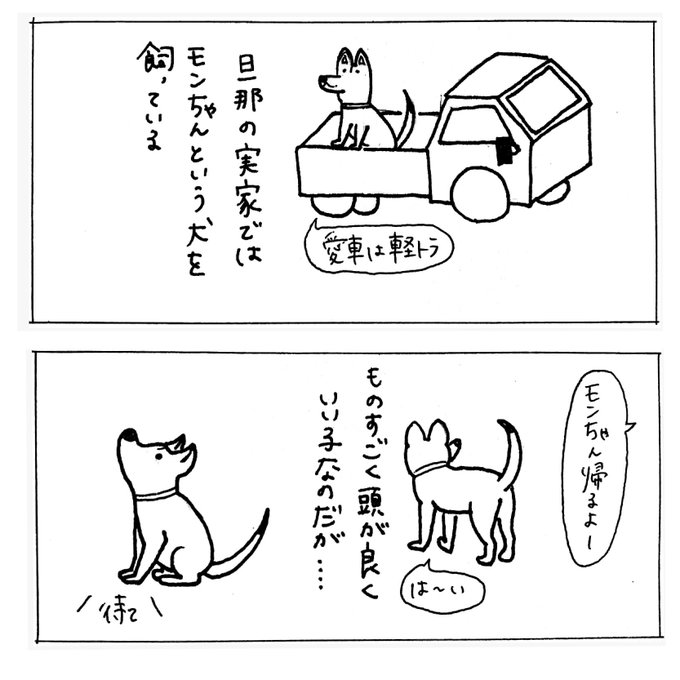 旦那の実家では
モンちゃんという犬を
飼っている
愛車は軽トラ
モンちゃん帰るよー
は～い
ものすごく頭が良く
いい子なのだが……
待て